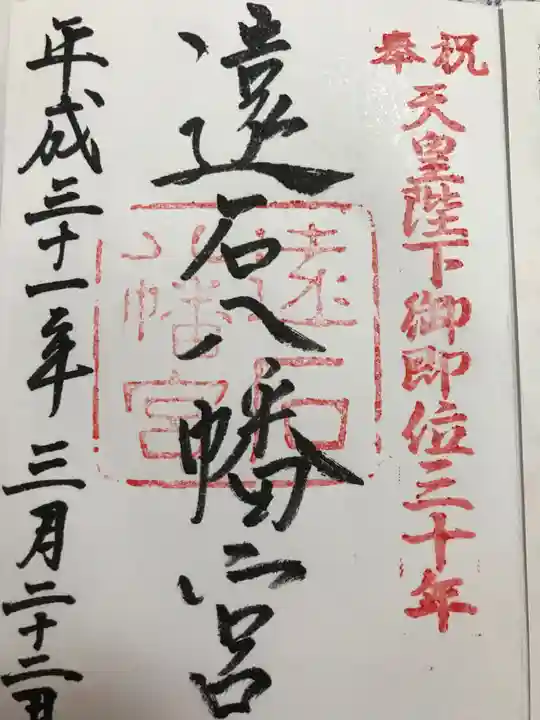 奉祝
天皇陛下御即位三十年
遠石八幡宮
遠石
八幡宮
平成三十一年三月二十二日